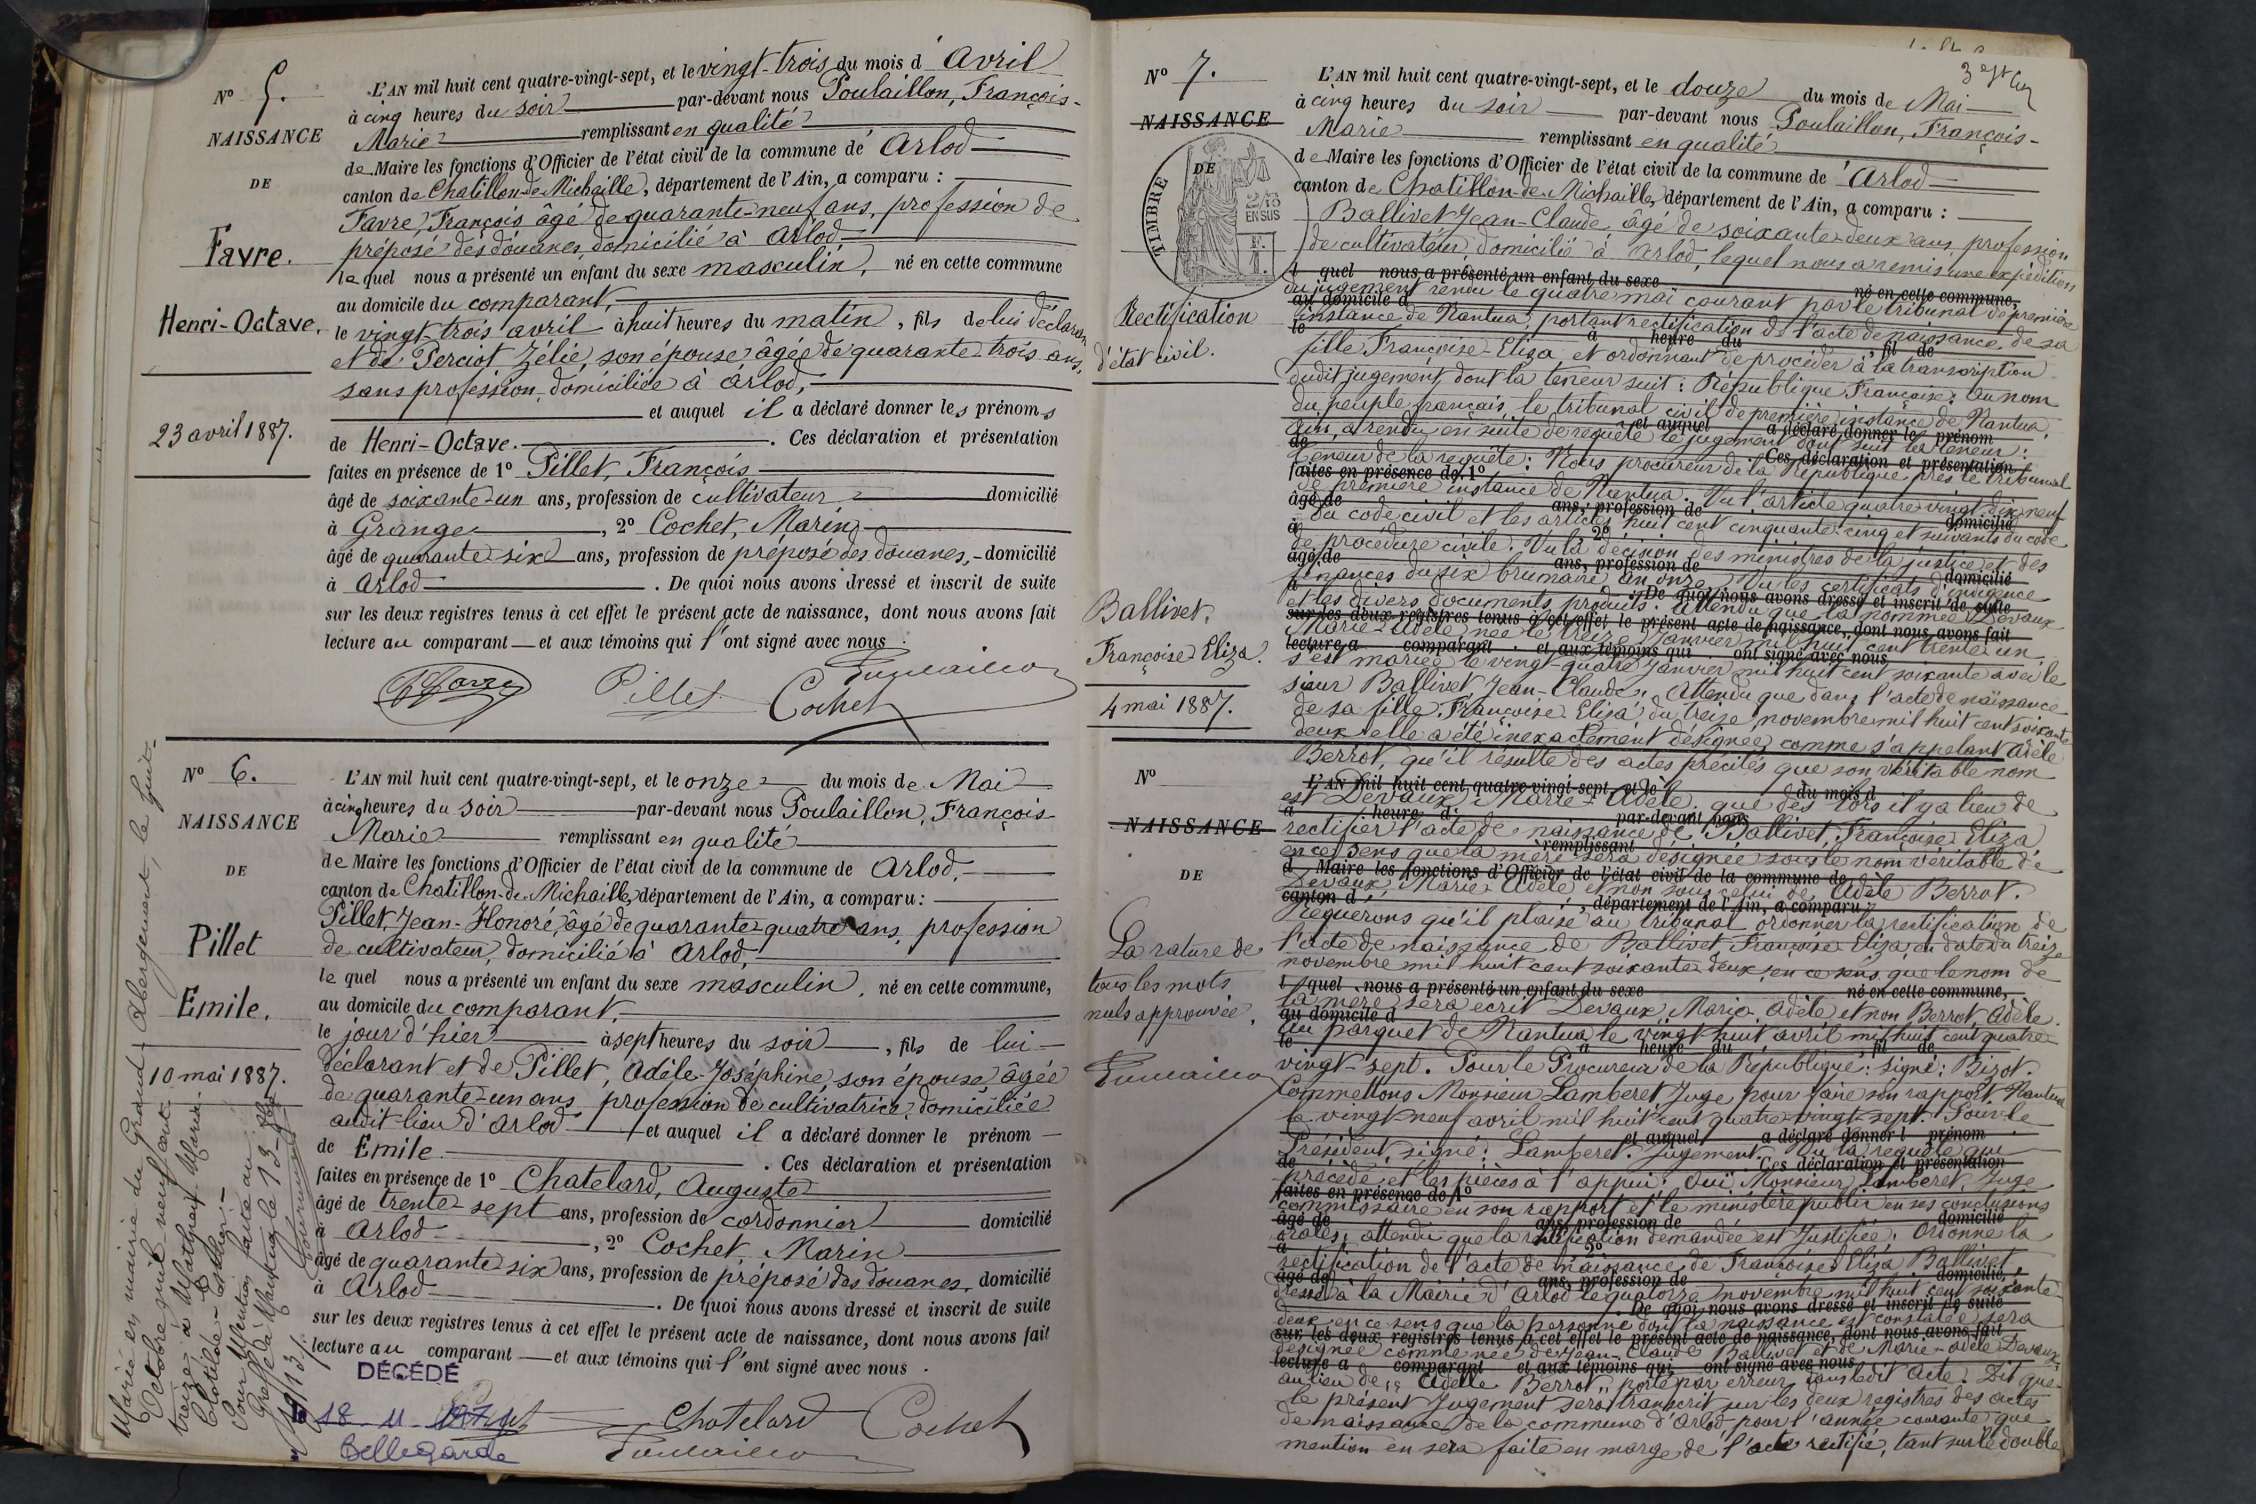 N° 5.
NAISSANCE
DE
Favre.
Henri-Octave.
23 avril 1887.
L'AN mil huit cent quatre-vingt-sept, et le vingt-trois du mois d'Avril
à cinq heures du soir par-devant nous Poulaillon, François-
Marie remplissant en qualité
de Maire les fonctions d'Officier de l'état civil de la commune de Arlod
canton de Chatillon-de-Michaille, département de l'Ain, a comparu :
Favre, François âgé de quarante-neuf ans, profession de
préposé des douanes, domicilié à Arlod,
le quel nous a présenté un enfant du sexe masculin, né en cette commune
au domicile du comparant,
le vingt-trois avril à huit heures du matin, fils de lui déclarant
et de Perciot Zélie, son épouse, âgée de quarante-trois ans,
sans profession, domiciliée à Arlod,
et auquel il a déclaré donner les prénoms
de Henri-Octave. Ces déclaration et présentation
faites en présence de 1° Pillet, François
âgé de soixante-un ans, profession de cultivateur domicilié
à Grange, 2° Cochet, Marin
âgé de quarante-six ans, profession de préposé des douanes, domicilié
à Arlod. De quoi nous avons dressé et inscrit de suite
sur les deux registres tenus à cet effet le présent acte de naissance, dont nous avons fait
lecture au comparant et aux témoins qui l'ont signé avec nous
Favre Pillet Cochet Poulaillon
N° 6.
NAISSANCE
DE
Pillet
Emile.
10 mai 1887.
L'AN mil huit cent quatre-vingt-sept, et le onze du mois de Mai
à cinq heures du soir par-devant nous Poulaillon, François-
Marie remplissant en qualité
de Maire les fonctions d'Officier de l'état civil de la commune de Arlod,
canton de Chatillon-de-Michaille, département de l'Ain, a comparu :
Pillet, Jean-Honoré, âgé de quarante-quatre ans, profession
de cultivateur, domicilié à Arlod,
le quel nous a présenté un enfant du sexe masculin, né en cette commune,
au domicile du comparant,
le jour d'hier à sept heures du soir, fils de lui
déclarant et de Pillet, Adèle-Joséphine, son épouse, âgée
de quarante-un ans, profession de cultivatrice, domiciliée
audit lieu d'Arlod et auquel il a déclaré donner le prénom
de Emile. Ces déclaration et présentation
faites en présence de 1° Chatelard, Auguste
âgé de trente-sept ans, profession de cordonnier domicilié
à Arlod, 2° Cochet, Marin
âgé de quarante-six ans, profession de préposé des douanes, domicilié
à Arlod. De quoi nous avons dressé et inscrit de suite
sur les deux registres tenus à cet effet le présent acte de naissance, dont nous avons fait
lecture au comparant et aux témoins qui l'ont signé avec nous.
DÉCÉDÉ
18-11
Bellegarde
Chatelard Cochet
Poulaillon
Marié en mairie du Grand-Abergement, le huit
Octobre mil neuf cent
treize à Mathieux Maria
Clotilde-Esther.-
Pour Mention faite au
Greffe de Nantua, le 13-
N° 7.
NAISSANCE
DE
TIMBRE
2/10
EN SUS
Rectification
d'état civil.
Ballivet.
Françoise Eliza.
4 mai 1887.
L'AN mil huit cent quatre-vingt-sept, et le douze du mois de Mai
à cinq heures du soir par-devant nous Poulaillon, François-
Marie remplissant en qualité
de Maire les fonctions d'Officier de l'état civil de la commune de Arlod
canton de Chatillon-de-Michaille, département de l'Ain, a comparu :
Ballivet Jean-Claude, âgé de soixante-deux ans, profession
de cultivateur, domicilié à Arlod, lequel nous a remis une expédition
du jugement rendu le quatre mai courant par le tribunal de première
instance de Nantua, portant rectification de l'acte de naissance de sa
fille Françoise-Eliza, et ordonnant de procéder à la transcription
dudit jugement dont la teneur suit : République Française. Au nom
du peuple français, le tribunal civil de première instance de Nantua,
Ain, a rendu en suite de requête le jugement dont suit la teneur :
Teneur de la requête : Nous procureur de la République près le tribunal
de première instance de Nantua. Vu l'article quatre vingt dix neuf
du code civil et les articles huit cent cinquante-cinq et suivants du code
de procédure civile. Vu la décision des ministres de la justice et des
finances du six brumaire an onze, Vu les certificats d'indigence
et les divers documents produits. Attendu que la nommée Devaux
Marie-Adèle née le treize Janvier mil huit cent trente un,
s'est mariée le vingt-quatre Janvier mil huit cent soixante avec le
sieur Ballivet Jean-Claude. Attendu que dans l'acte de naissance
de sa fille Françoise Eliza du treize novembre mil huit cent soixante
deux elle a été inexactement désignée comme s'appelant Adèle
Berrot, qu'il résulte des actes précités que son véritable nom
est Devaux Marie-Adèle, que dès lors il y a lieu de
rectifier l'acte de naissance de Ballivet, Françoise Eliza
en ce sens que la mère sera désignée sous le nom véritable de
Devaux Marie-Adèle et non sous celui de Adèle Berrot.
Requerons qu'il plaise au tribunal ordonner la rectification de
l'acte de naissance de Ballivet, Françoise Eliza, en date du treize
novembre mil huit cent soixante deux, en ce sens que le nom de
la mère sera écrit Devaux Marie Adèle et non Berrot Adèle.
Au parquet de Nantua le vingt-huit avril mil huit cent quatre-
vingt-sept. Pour le Procureur de la République : signé : Bizot.
Commettons Monsieur Lamberet, Juge pour faire son rapport. Nantua
le vingt-neuf avril mil huit cent quatre-vingt-sept. Pour le
Président, signé : Lamberet. Jugement. Vu la requête qui
précède et les pièces à l'appui. Ouï Monsieur Lamberet Juge
commissaire en son rapport et le ministère public en ses conclusions
orales, attendu que la rectification demandée est justifiée, Ordonne la
rectification de l'acte de naissance de Françoise Eliza Ballivet,
dressé à la Mairie d'Arlod le quatorze novembre mil huit cent soixante
deux en ce sens que la personne dont la naissance est constatée sera
désignée comme née de Jean-Claude Ballivet et de Marie-Adèle Devaux
au lieu de "Adelle Berrot" porté par erreur dans ledit acte. Dit que
le présent Jugement sera transcrit sur les deux registres des actes
de naissance de la commune d'Arlod, pour l'année courante que
mention en sera faite en marge de l'acte rectifié, tant sur le double
N°
NAISSANCE
DE
La rature de
tous les mots
nuls approuvée.
Poulaillon